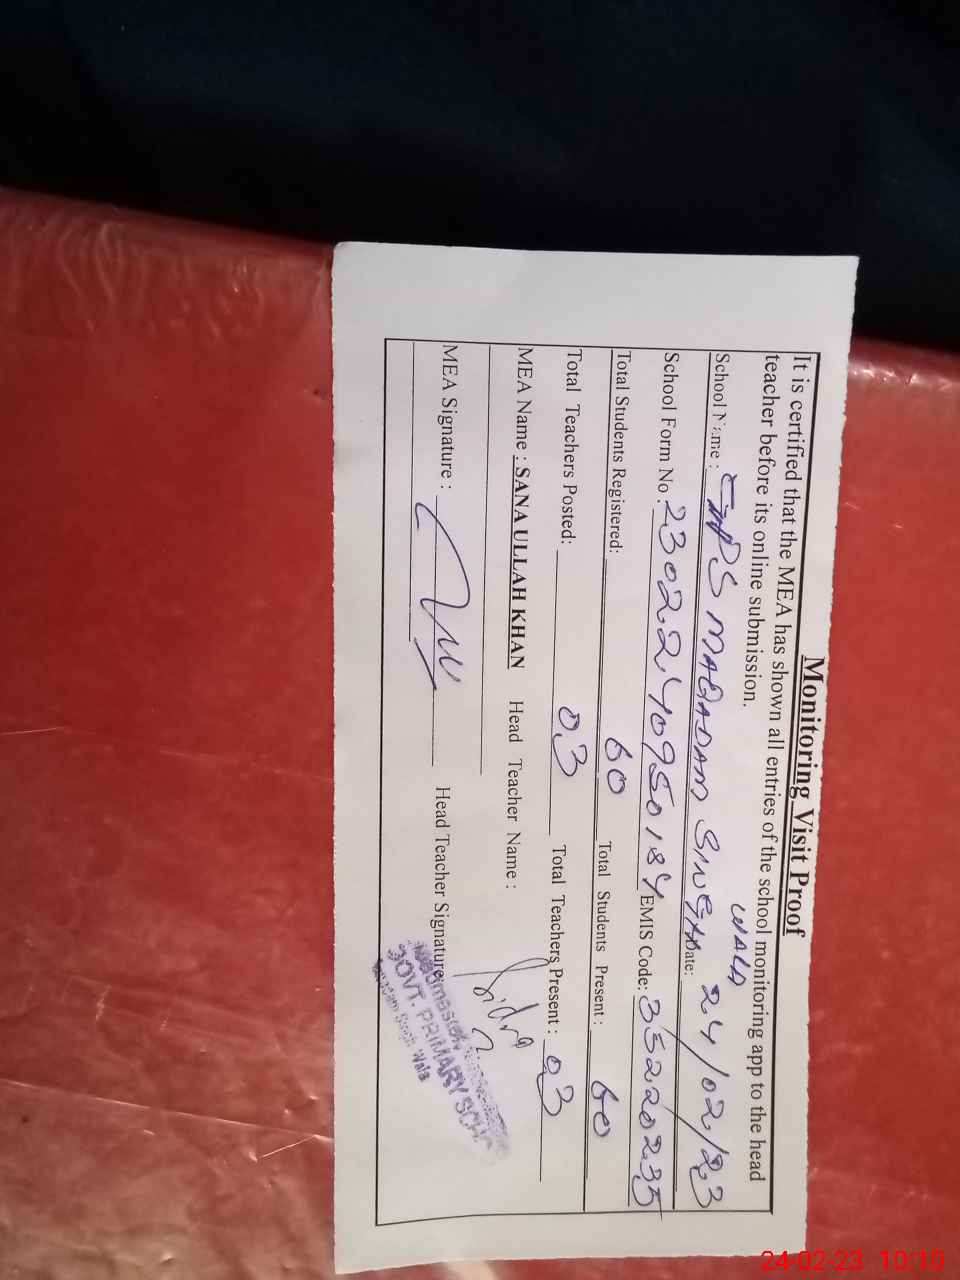 Monitoring Visit Proof
It is certified that the MEA has shown all entries of the school monitoring app to the head
teacher before its online submission.
School Name: GPS MAQADAM SINGH WALA Date: 24/02/23
School Form No: 2302240950184 EMIS Code: 35220235
Total Students Registered: 60 Total Students Present: 60
Total Teachers Posted: 03 Total Teachers Present: 03
MEA Name: SANA ULLAH KHAN Head Teacher Name:
MEA Signature: Head Teacher Signature
GOVT. PRIMARY SCH
Singh Wala
24-02-23 10:10